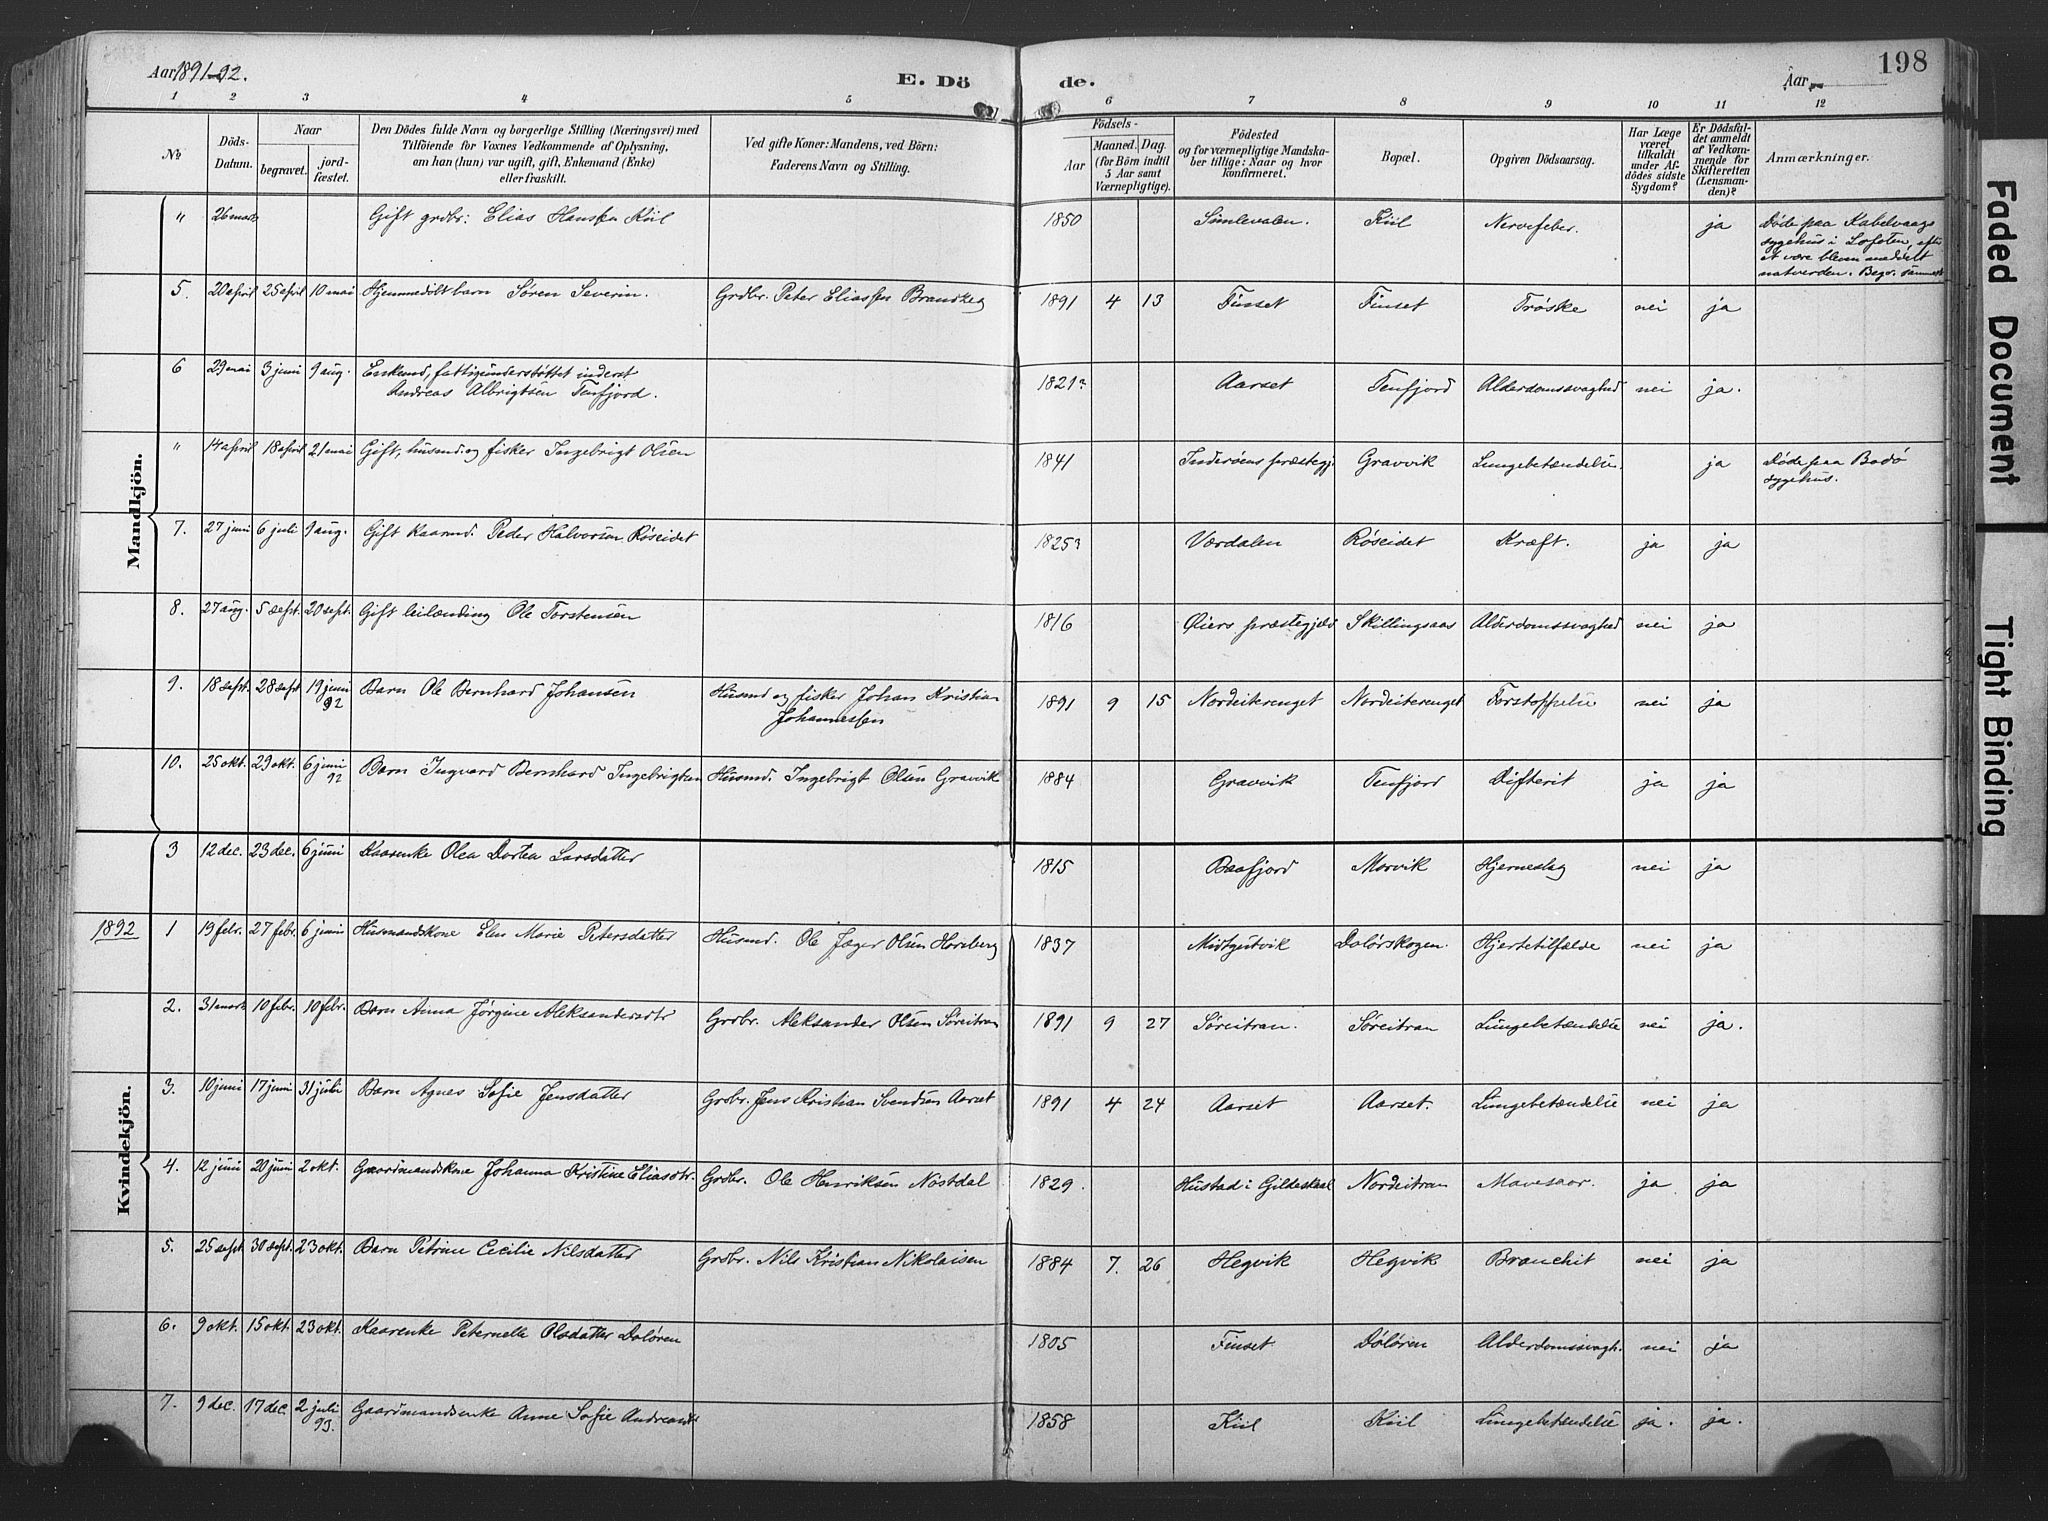 Aar 1891-92.
E. Dö
de.
Aar
198
1 2 3 4 5 6 7 8 9 10 11 12
No
Döds-Datum.
Naar
begravet.
jord-fæstet.
Den Dödes fulde Navn og borgerlige Stilling (Næringsvei) med
Tilföiende for Voxnes Vedkommende af Oplysning,
om han (hun) var ugift, gift, Enkemand (Enke)
eller fraskilt.
Ved gifte Koner: Mandens, ved Börn:
Faderens Navn og Stilling.
Födsels-
Aar
Maaned. Dag.
(for Börn indtil
5 Aar samt
Værnepligtige).
Födested
og for værnepligtige Mandska-
ber tillige: Naar og hvor
konfirmeret.
Bopæl.
Opgiven Dödsaarsag.
Har Læge
været
tilkaldt
under Af-
dödes sidste
Sygdom?
Er Dödsfal-
det anmeldt
af Vedkom-
mende for
Skifteretten
(Lensman-
den)?
Anmærkninger.
Mandkjön.
" 26 marts Gift grdbr: Elias Hansen Kiil 1850 Simlevalen. Kiil Nervefeber. ja Døde paa Kabelvaags
sygehus i Lofoten, efter
at være bleven meddelt
natverden. Begr.
5. 20 april 25 april 10 mai Hjemmedøbt barn Søren Severin. Grdbr. Peter Eliassen Brandzeg 1891 4 13 Finset Finset Trøske nei ja
6 29 mai 3 juni 9 aug. Enkemd, fattigunderstøttet inderst
Andreas Albrigtsen Tenfjord. 1821? Aarset Tenfjord Alderdomssvaghed nei ja.
" 14 april 18 april 21 mai Gift, husmd. og fisker Ingebrigt Olsen 1841 Inderøens præstegj. Gravvik Lungebetændelse. ja Døde paa Bodø
sygehus.
7. 27 juni 6 juli 9 aug. Gift kaarmd. Peder Halvorsen Røseidet 1825? Værdalen Røseidet Kræft. ja ja
8. 27 aug. 5 sept. 20 sept. Gift leilænding Ole Torstensen 1816 Øiers præstegjeld Skillingsaas Alderdomssvaghed nei ja
9. 18 sept. 28 sept 19 juni
92 Barn Ole Bernhard Johansen Husmd og fisker Johan Kristian
Johannessen 1891 9 15 Nordeiterenget Nordeiterenget Forstoppelse nei ja
10. 25 okt. 29 okt. 6 juni
92 Barn Ingvard Bernhard Ingebrigtsen Husmd. Ingebrigt Olsen Gravvik 1884 Gravvik Tenfjord Difterit ja ja
3 12 dec. 23 dec. 6 juni Kaarenke Olea Dortea Larsdatter 1815 Baafjord Marvik Hjerneslag nei ja
1892
1 19 febr. 27 febr. 6 juni Husmandskone Elen Marie Petersdatter Husmd. Ole Jæger Olsen Hornberg 1837 Midtgutvik Dolørskogen. Hjertetilfælde nei ja
2. 31 10 febr. 10 febr. Barn Anna Jørgine Aleksandersdtr Grdbr. Aleksander Olsen Søreitran 1891 9 27 Søreitran. Søreitran Lungebetændelse nei ja.
Kvindekjön.
3. 10 juni 17 juni 31 juli Barn Agnes Sofie Jensdatter Grdbr. Jens Kristian Svendsen Aarset 1891 4 24 Aarset Aarset. Lungebetændelse nei ja
4. 12 juni 20 juni 2 okt. Gaardmandskone Johanna Kristine Eliasdtr. Grdbr. Ole Henriksen Nøstdal 1829. Hustad i Gildeskaal Nordeitran Mavesaar. ja ja
5. 25 sept 30 sept. 23 okt. Barn Petrine Cecilie Nilsdatter Grdbr. Nils Kristian Nikolaisen 1884 7. 26 Hegvik Hegvik Bronchit nei ja
6. 9 okt. 15 okt. 23 okt. Kaarenke Peternelle Olsdatter Doløren 1805 Finset Doløren Alderdomssvagh. nei ja
7. 9 dec. 17 dec. 2 juli
93. Gaardmandsenke Anne Sofie Andreasdt 1858 Kiil Kiil Lungebetændelse ja. ja.
Faded Document
Tight Binding